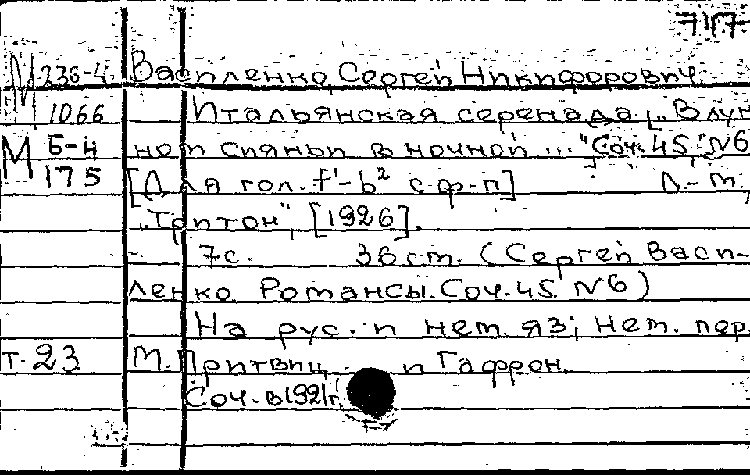 7117
М 236-4 Василенко, Сергей Никифорович
М 1066 Итальянская серенада. "В лун
М Б-4 ном сияньи в ночной..." Соч. 45, №6
175 [Для гол. f¹-b² с ф-п] Л.-М,
"Тритон", [1926].
7с. 36 cm. (Сергей Васи-
ленко. Романсы. Соч. 45. №6)
На рус. и нем. яз; нем. пер.
Т-23 М. Притвиц и Гафрон.
Соч. в 1921г.